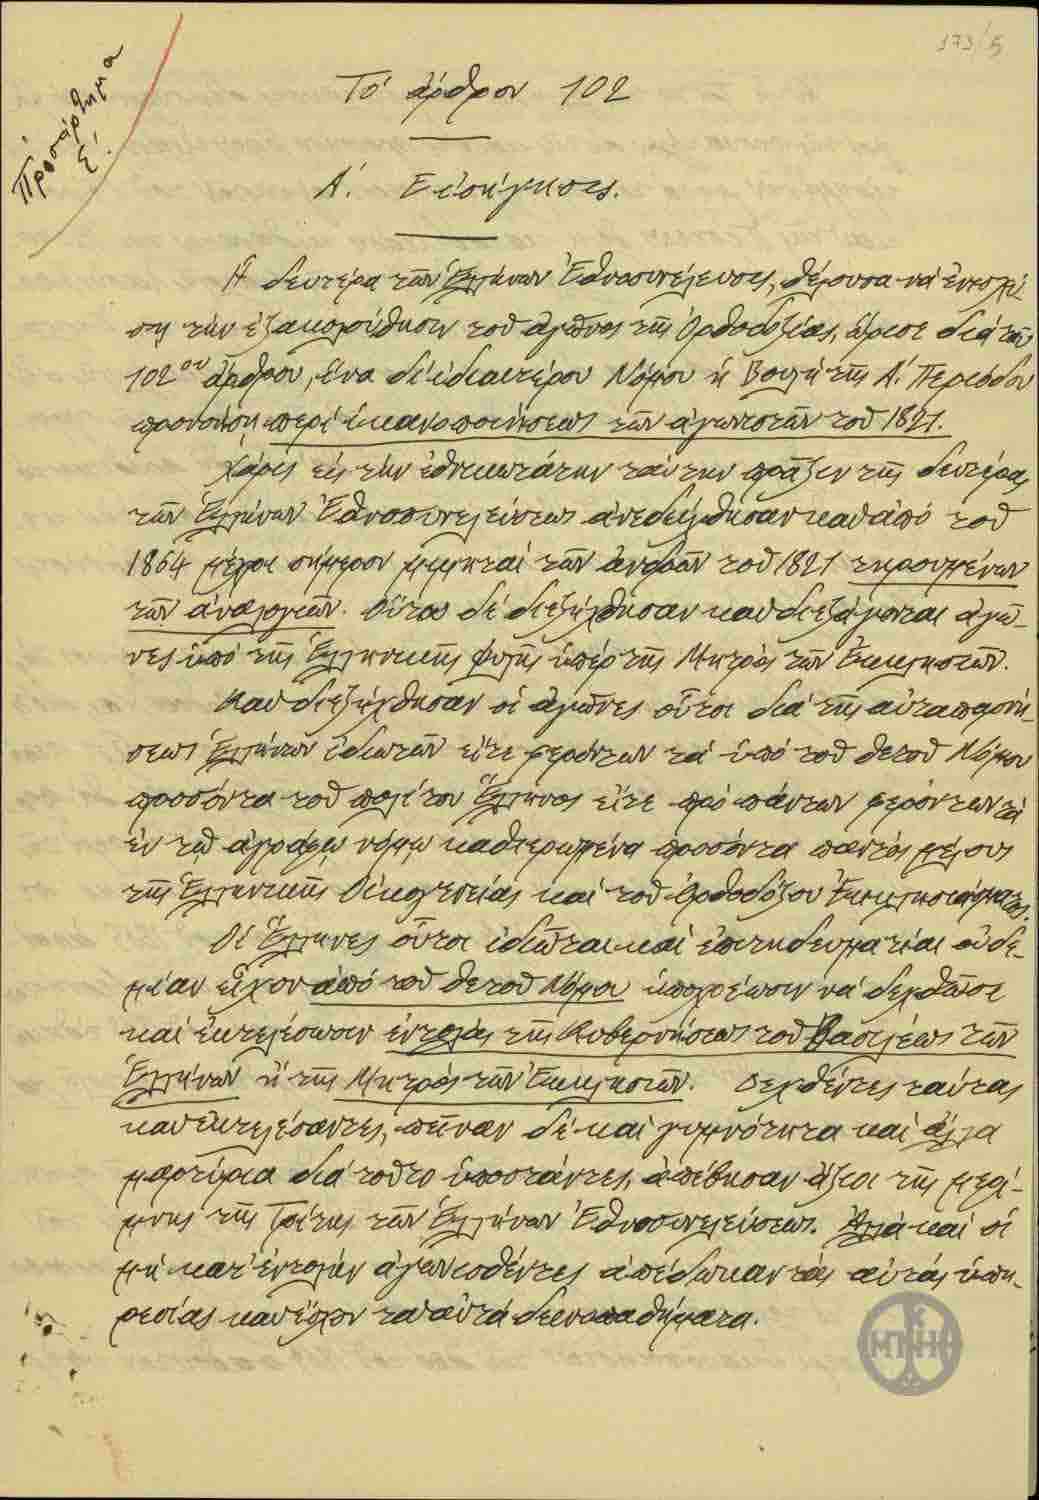 173/5
Προσάρτημα
Ε΄.
Τό ἄρθρον 102
Α΄. Εἰσήγησις.
Ἡ δευτέρα τῶν Ἑλλήνων Ἐθνοσυνέλευσις, θέλουσα νά ἐνισχύ-
σῃ τήν ἐξακολούθησιν τοῦ ἀγῶνος τῆς Ὀρθοδοξίας, ὥρισε διά τοῦ
102ου ἄρθρου, ἵνα δι' ἰδιαιτέρου Νόμου ἡ Βουλή τῆς Α΄. Περιόδου
προνοήσῃ περί ἱκανοποιήσεως τῶν ἀγωνιστῶν τοῦ 1821.
Χάρις εἰς τήν ἐθνικωτάτην ταύτην πρᾶξιν τῆς δευτέρας
τῶν Ἑλλήνων Ἐθνοσυνελεύσεως ἀνεδείχθησαν καί ἀπό τοῦ
1864 μέχρι σήμερον μιμηταί τῶν ἀνδρῶν τοῦ 1821 τηρουμένων
τῶν ἀναλογιῶν. Οὕτως δέ διεξήχθησαν καί διεξάγονται ἀγῶ-
νες ὑπό τῆς Ἑλληνικῆς φυλῆς ὑπέρ τῆς Μητρός τῶν Ἐκκλησιῶν.
Καί διεξήχθησαν οἱ ἀγῶνες οὗτοι διά τῆς αὐταπαρνή-
σεως Ἑλλήνων ἰδιωτῶν εἴτε φερόντων τά ὑπό τοῦ θετοῦ Νόμου
προσόντα τοῦ πολίτου Ἕλληνος εἴτε πρό πάντων φερόντων τά
ἐν τῷ ἀγράφῳ νόμῳ καθιερωμένα προσόντα παντός μέλους
τῆς Ἑλληνικῆς Οἰκογενείας καί τοῦ Ὀρθοδόξου Ἐκκλησιάσματος.
Οἱ Ἕλληνες οὗτοι ἰδιῶται καί ἐπιτηδευματίαι οὐδε-
μίαν εἶχον ἀπό τοῦ θετοῦ Νόμου ὑποχρέωσιν νά δεχθῶσι
καί ἐκτελέσωσιν ἐντολάς τῆς Κυβερνήσεως τοῦ Βασιλέως τῶν
Ἑλλήνων ἤ τῆς Μητρός τῶν Ἐκκλησιῶν. Δεχθέντες ταύτας
καί ἐκτελέσαντες, πεῖναν δέ καί γυμνότητα καί ἄλλα
μαρτύρια διά τοῦτο ὑποστάντες, ἀπέβησαν ἄξιοι τῆς μερί-
μνης τῆς Τρίτης τῶν Ἑλλήνων Ἐθνοσυνελεύσεως. Ἀλλά καί οἱ
μή κατ' ἐντολήν ἀγωνισθέντες ἀπέδωκαν τάς αὐτάς ὑπη-
ρεσίας καί ἔσχον τά αὐτά δεινοπαθήματα.